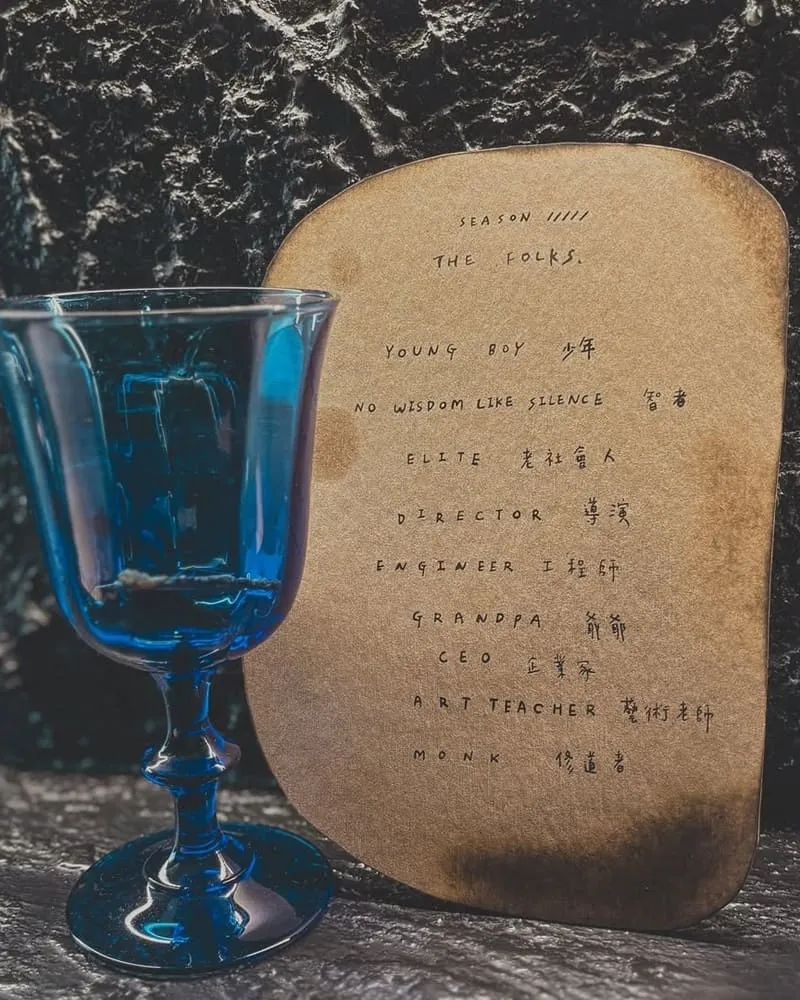 SEASON /////
THE FOLKS.
YOUNG BOY 少年
NO WISDOM LIKE SILENCE 智者
ELITE 老社會人
DIRECTOR 導演
ENGINEER 工程師
GRANDPA 爺爺
CEO 企業家
ART TEACHER 藝術老師
MONK 修道者